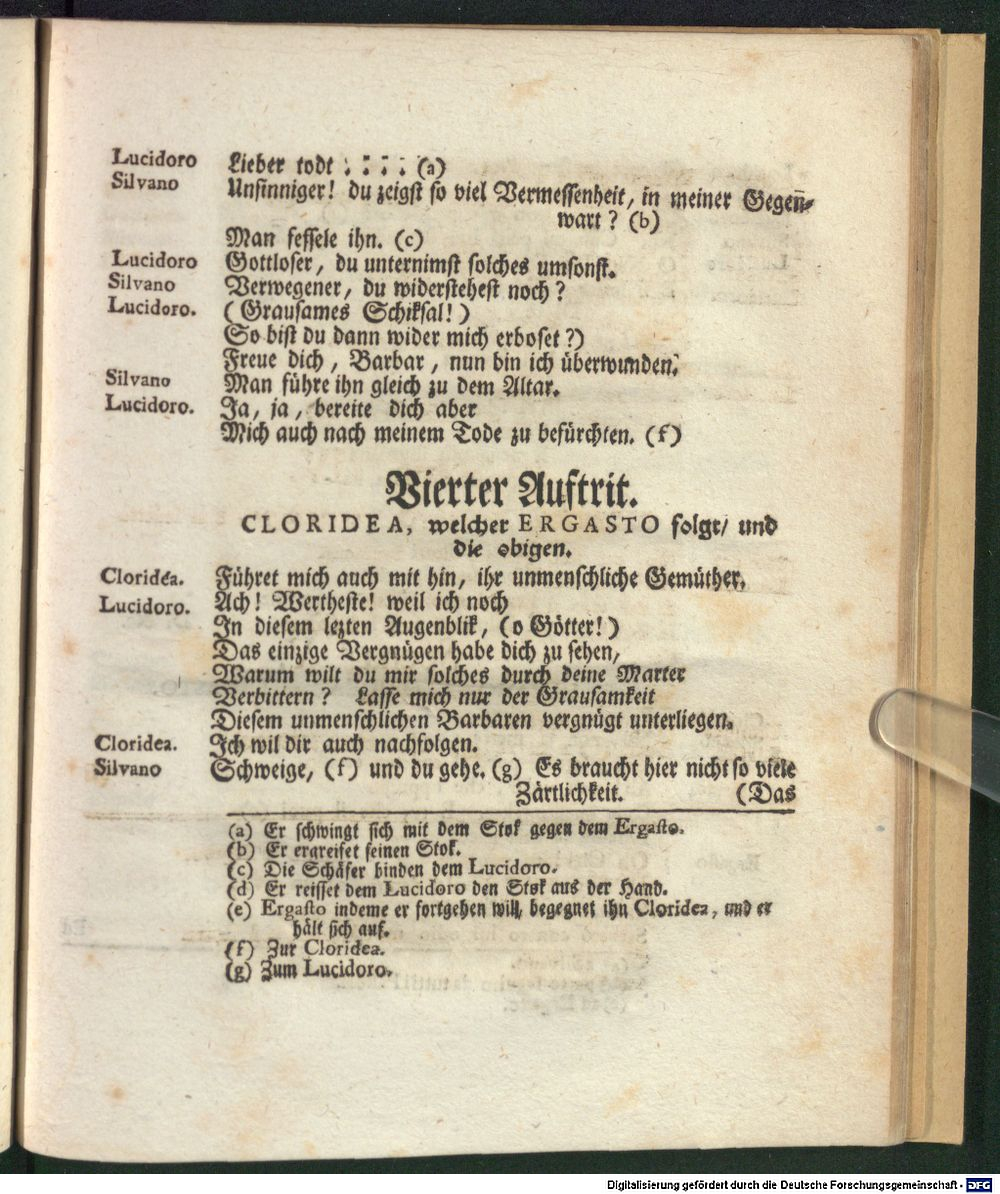 Lucidoro Lieber todt : : : : (a)
Silvano Unsinniger! du zeigst so viel Vermessenheit, in meiner Gegen̅-
wart? (b)
Man fessele ihn. (c)
Lucidoro Gottloser, du unternimst solches umsonst.
Silvano Verwegener, du widerstehest noch?
Lucidoro. (Grausames Schiksal!)
So bist du dann wider mich erboset?)
Freue dich, Barbar, nun bin ich überwunden.
Silvano Man führe ihn gleich zu dem Altar.
Lucidoro. Ja, ja, bereite dich aber
Mich auch nach meinem Tode zu befürchten. (f)
Vierter Auftrit.
CLORIDEA, welcher ERGASTO folgt/ und
die obigen.
Cloridea. Führet mich auch mit hin, ihr unmenschliche Gemüther.
Lucidoro. Ach! Wertheste! weil ich noch
In diesem lezten Augenblik, (o Götter!)
Das einzige Vergnügen habe dich zu sehen,
Warum wilt du mir solches durch deine Marter
Verbittern? Lasse mich nur der Grausamkeit
Diesem unmenschlichen Barbaren vergnügt unterliegen.
Cloridea. Ich wil dir auch nachfolgen.
Silvano Schweige, (f) und du gehe. (g) Es braucht hier nicht so viele
Zärtlichkeit. (Das
(a) Er schwingt sich mit dem Stok gegen dem Ergasto.
(b) Er ergreifet seinen Stok.
(c) Die Schäfer binden dem Lucidoro.
(d) Er reisset dem Lucidoro den Stok aus der Hand.
(e) Ergasto indeme er fortgehen will, begegnet ihn Cloridea, und er
hält sich auf.
(f) Zur Cloridea.
(g) Zum Lucidoro.
Digitalisierung gefördert durch die Deutsche Forschungsgemeinschaft - DFG